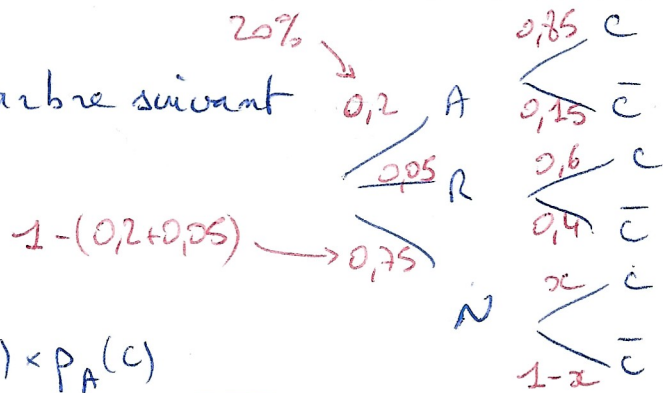 20% 0,85 C
arbre suivant 0,2 A 0,15 C̄
0,05 R 0,6 C
0,4 C̄
1-(0,2+0,05) → 0,75
x C
N
1-x C̄
) × p_A(C)